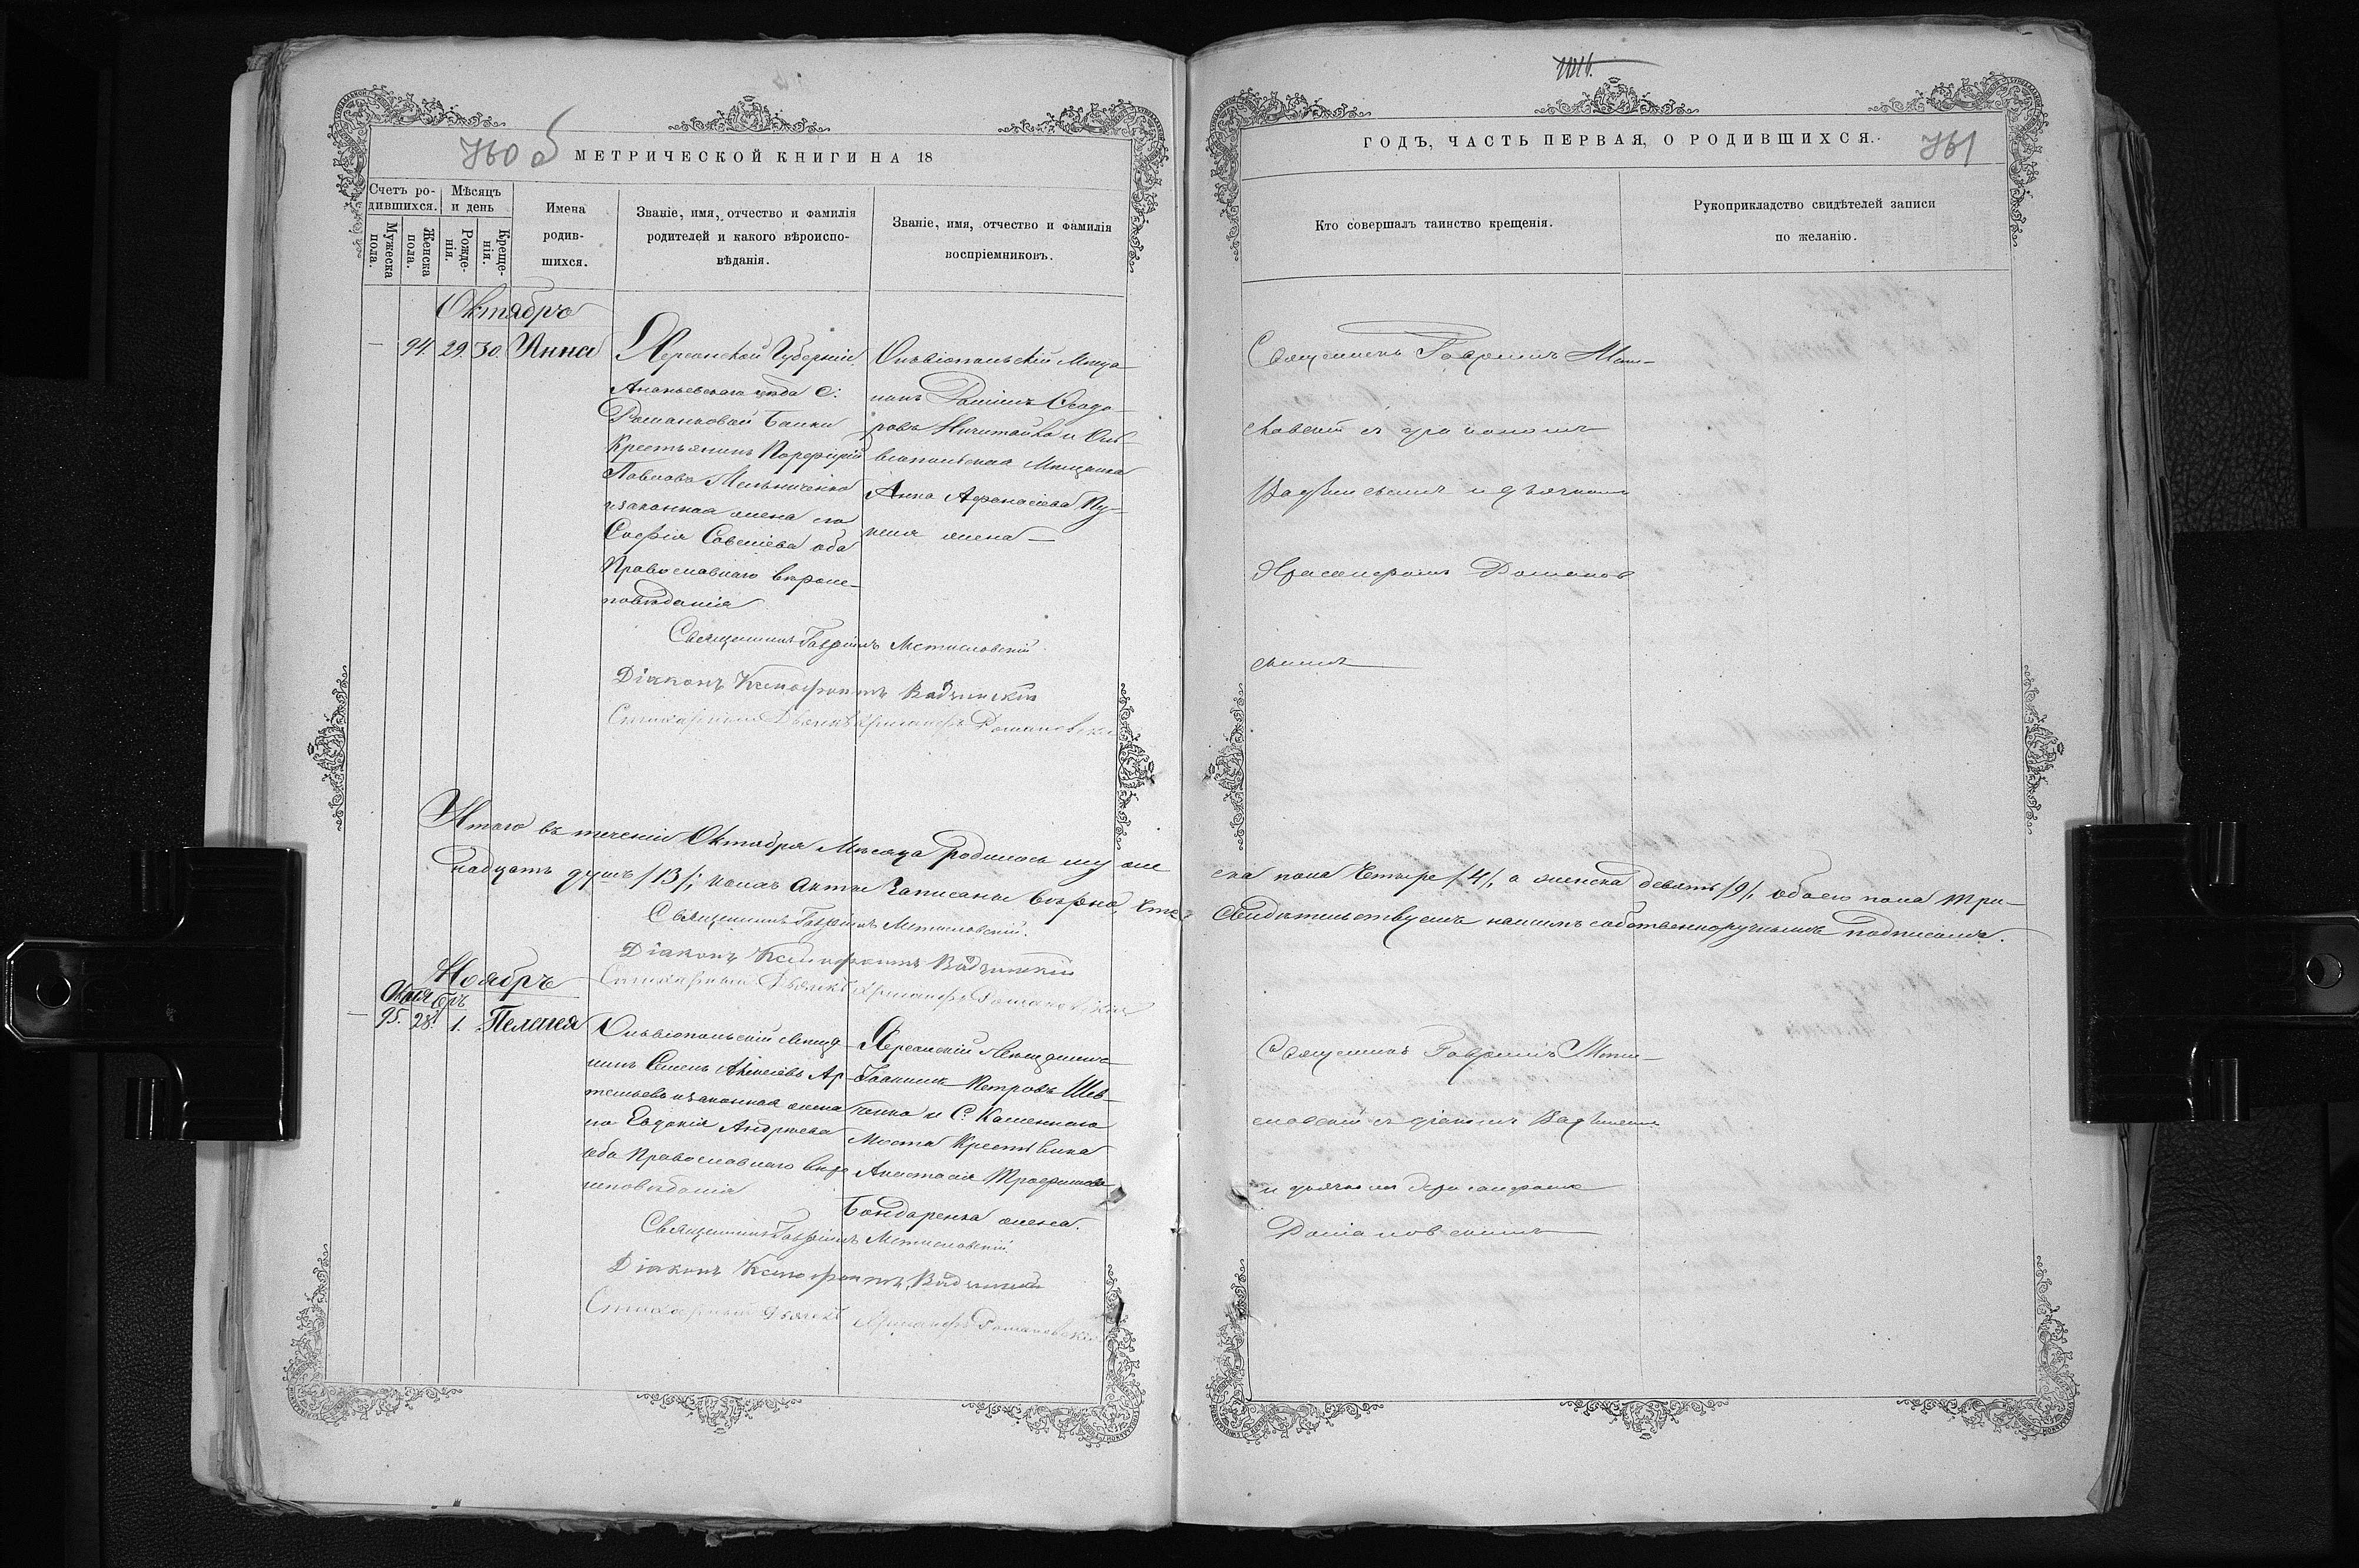 760 б
МЕТРИЧЕСКОЙ КНИГИ НА 18
Счетъ родившихся.
Мѣсяцъ и день
Имена родившихся.
Званіе, имя, отчество и фамилія родителей и какого вѣроисповѣданія.
Званіе, имя, отчество и фамилія воспріемниковъ.
Мужеска пола.
Женска пола.
Рожденія.
Крещенія.
Октябрь
— 94. 29. 30. Анна
Херсонской Губерніи
Ананьевскаго уѣзда С:
Романковой Балки
Крестьянинъ Порфирій
Павловъ Мельниченко
и законная жена его
Софія Савеліева оба
Православнаго вѣроис-
повѣданія
Ольвіопольскій Мѣща-
нинъ Феодо-
ровъ и Оль-
віопольская Мѣщанка
Анна Афанасіева
жена —
Священникъ Гавріилъ Мстиславскій
Діаконъ Ксенофонтъ
Стихарный Дьячекъ Хрисанфъ Романовскій
Итого въ теченіи Октября Мѣсяца родилось муже
надцать душъ /13/;
Священникъ Гавріилъ Мстиславскій.
Діаконъ Ксенофонтъ
Стихарный Дьячекъ Хрисанфъ Романовскій
Ноябрь
Октябрь
— 95. 28. 1. Пелагея
Ольвіопольскій Мѣща-
нинъ Семенъ Алексіевъ Ар-
темьевъ и законная жена
его Евдокія Андреева
оба Православнаго вѣро
исповѣданія
Херсонскій Мѣщанинъ
Іоанникъ Петровъ Шев-
ченко и С. Каменнаго
Моста Крестьянка
Анастасія Трофимова
Бондаренка жена.
Священникъ Гавріилъ Мстиславскій
Діаконъ Ксенофонтъ
Стихарный Дьячекъ Хрисанфъ Романовскій
ГОДЪ, ЧАСТЬ ПЕРВАЯ, О РОДИВШИХСЯ.
761
Кто совершалъ таинство крещенія.
Рукоприкладство свидѣтелей записи по желанію.
Священникъ Гавріилъ Мсти-
славскій съ діакономъ
и дьячкомъ
Хрисанфомъ Романов
скимъ
ска пола Четыре /4/, а женска девять /9/, обоего пола три-
Свидѣтельствуемъ нашимъ собственноручнымъ подписомъ.
Священникъ Гавріилъ Мсти-
славскій съ
и дьячкомъ Хрисанфомъ
Романовскимъ